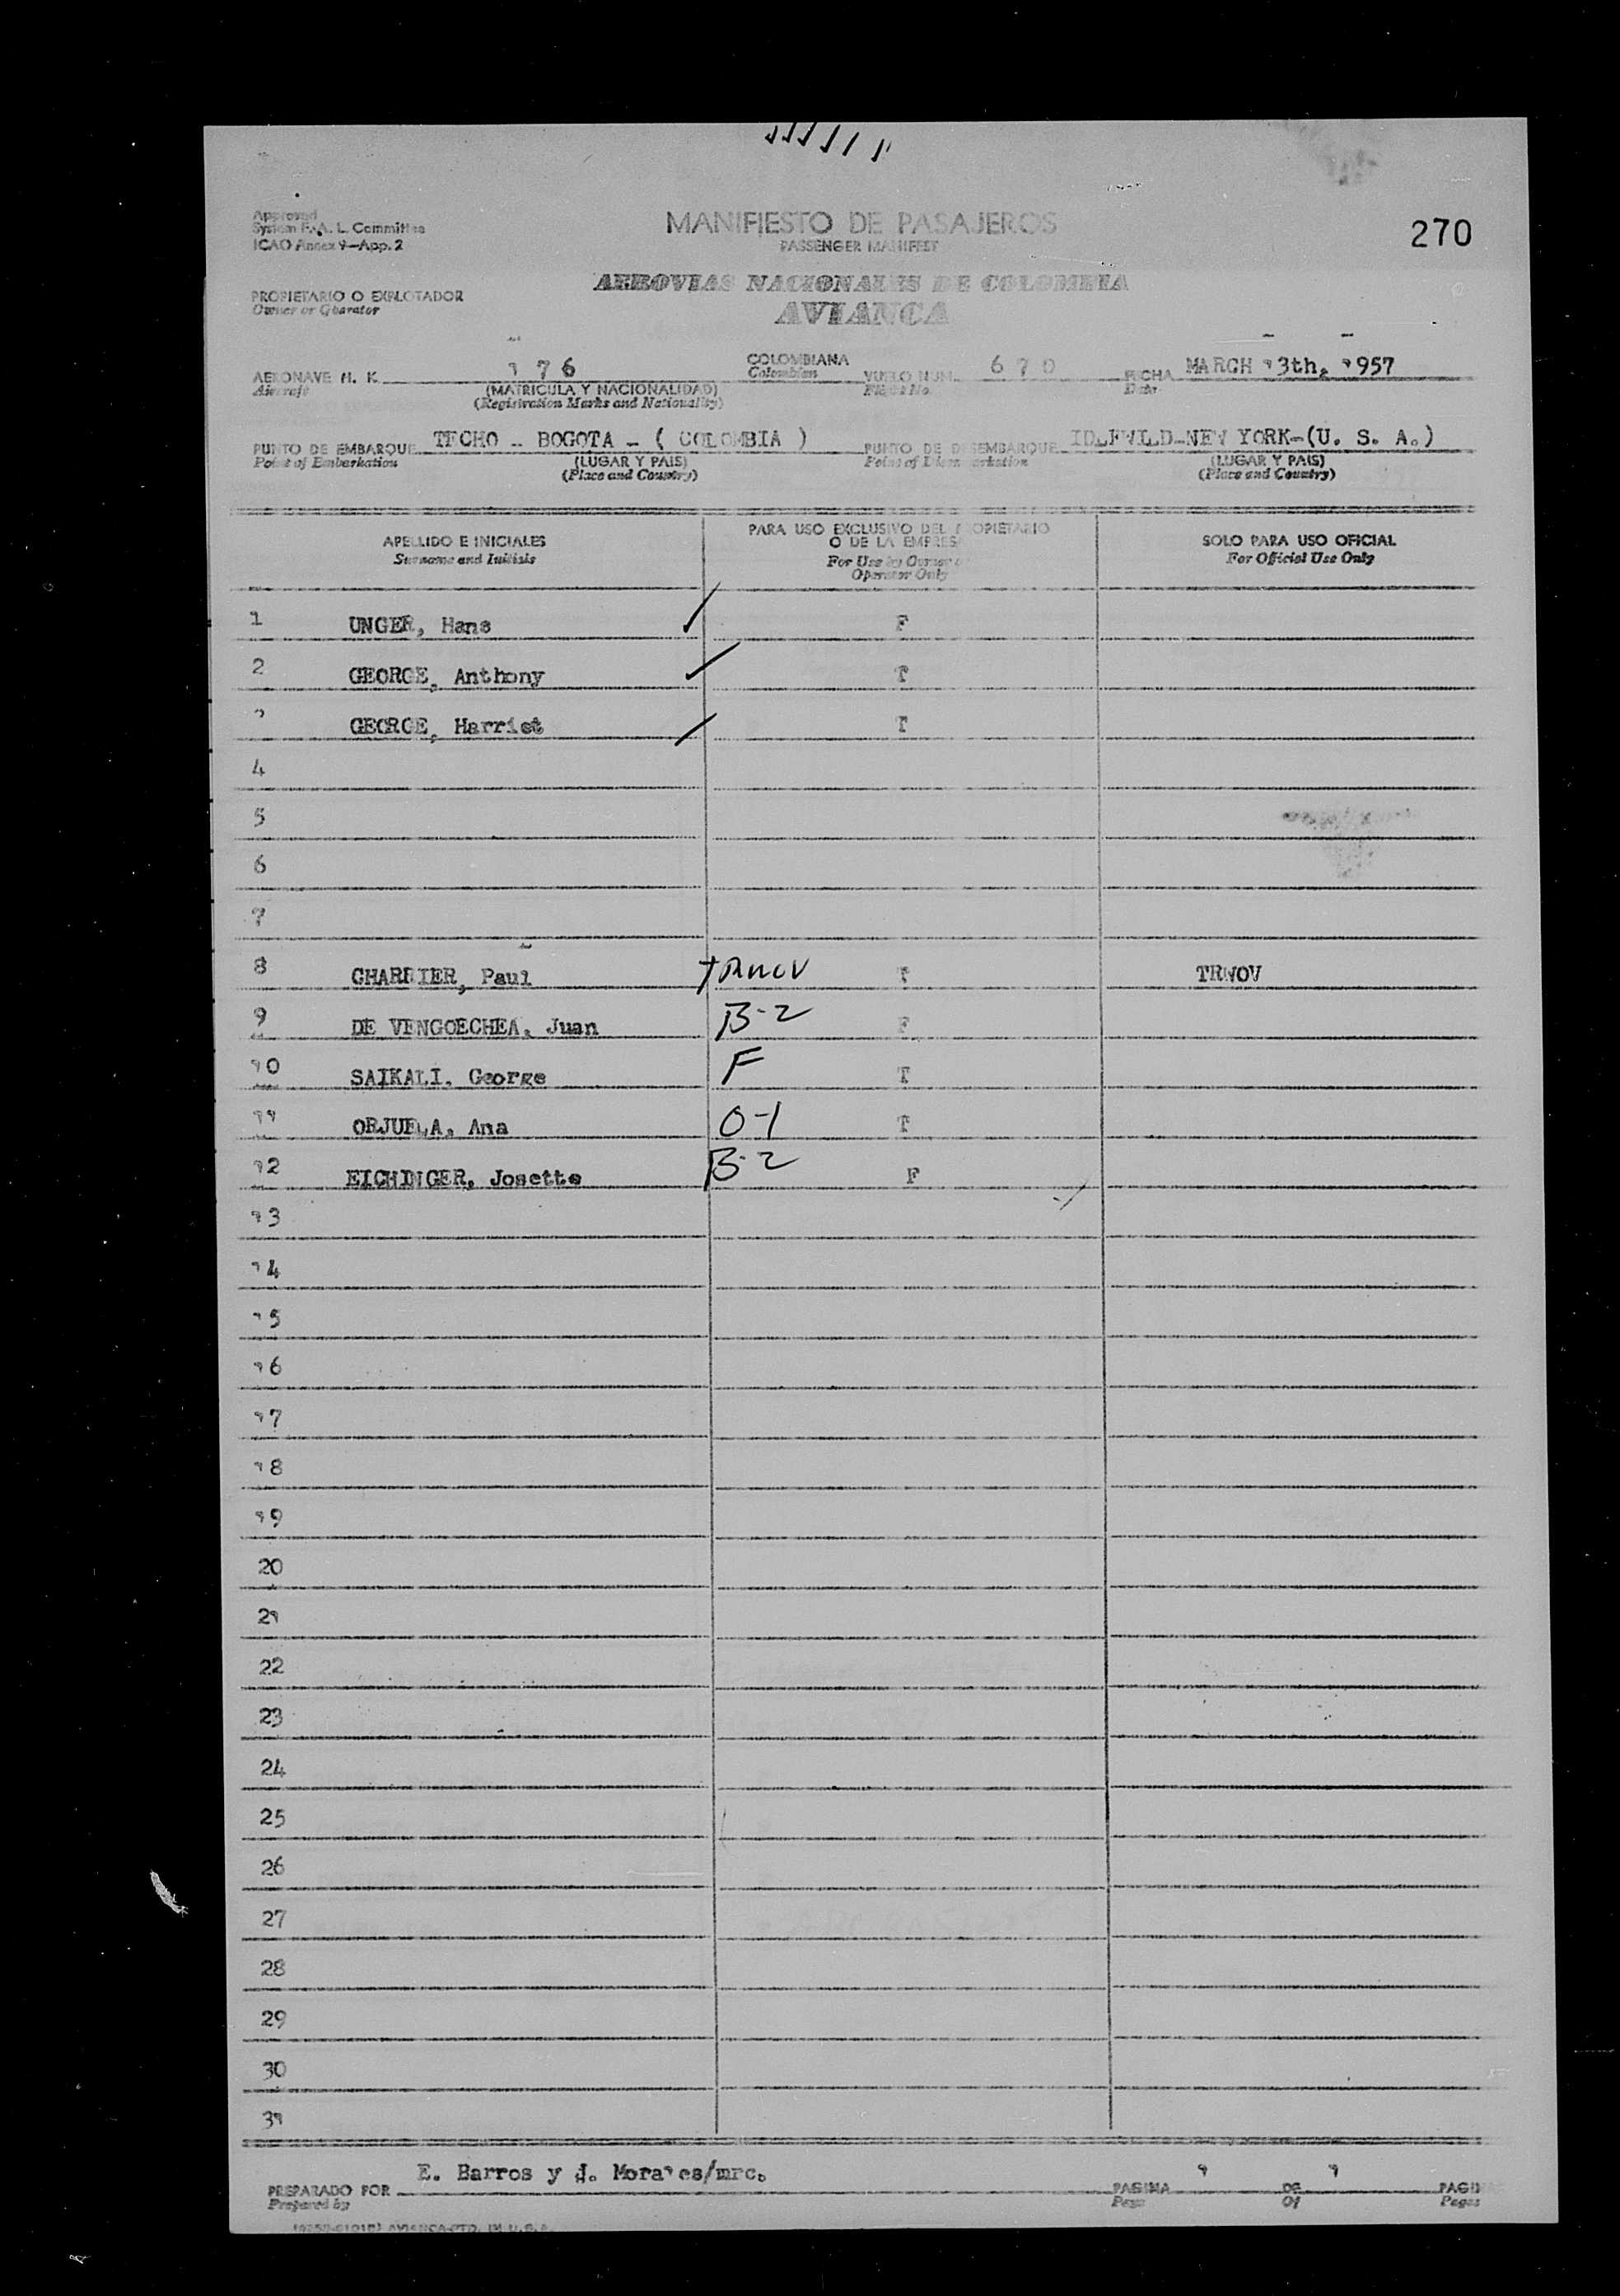 Approved
System F.A.L. Committee
ICAO Annex 9—App. 2
MANIFIESTO DE PASAJEROS
PASSENGER MANIFEST
270
PROPIETARIO O EXPLOTADOR
Owner or Operator
AEROVIAS NACIONALES DE COLOMBIA
AVIANCA
AERONAVE H. K. 176 COLOMBIANA VUELO NUM. 670 FECHA MARCH 13th, 1957
Aircraft (MATRICULA Y NACIONALIDAD) Colombian Flight No. Date
(Registration Marks and Nationality)
PUNTO DE EMBARQUE TECHO - BOGOTA - ( COLOMBIA ) PUNTO DE DESEMBARQUE IDLEWILD-NEW YORK-(U. S. A.)
Point of Embarkation (LUGAR Y PAIS) Point of Disembarkation (LUGAR Y PAIS)
(Place and Country) (Place and Country)
APELLIDO E INICIALES
Surname and Initials
PARA USO EXCLUSIVO DEL PROPIETARIO
O DE LA EMPRESA
For Use by Owner or
Operator Only
SOLO PARA USO OFICIAL
For Official Use Only
1 UNGER, Hans F
2 GEORGE, Anthony T
3 GEORGE, Harriet T
4
5
6
7
8 CHARRIER, Paul TRWOV T TRWOV
9 DE VENGOECHEA, Juan B-2 F
10 SAIKALI, George F T
11 ORJUELA, Ana O-1 T
12 EICHINGER, Josette B-2 F
13
14
15
16
17
18
19
20
21
22
23
24
25
26
27
28
29
30
31
PREPARADO POR E. Barros y J. Morales/mrc. PAGINA 1 DE 1 PAGINAS
Prepared by Page Of Pages
AVIANCA-PTD. IN U.S.A.